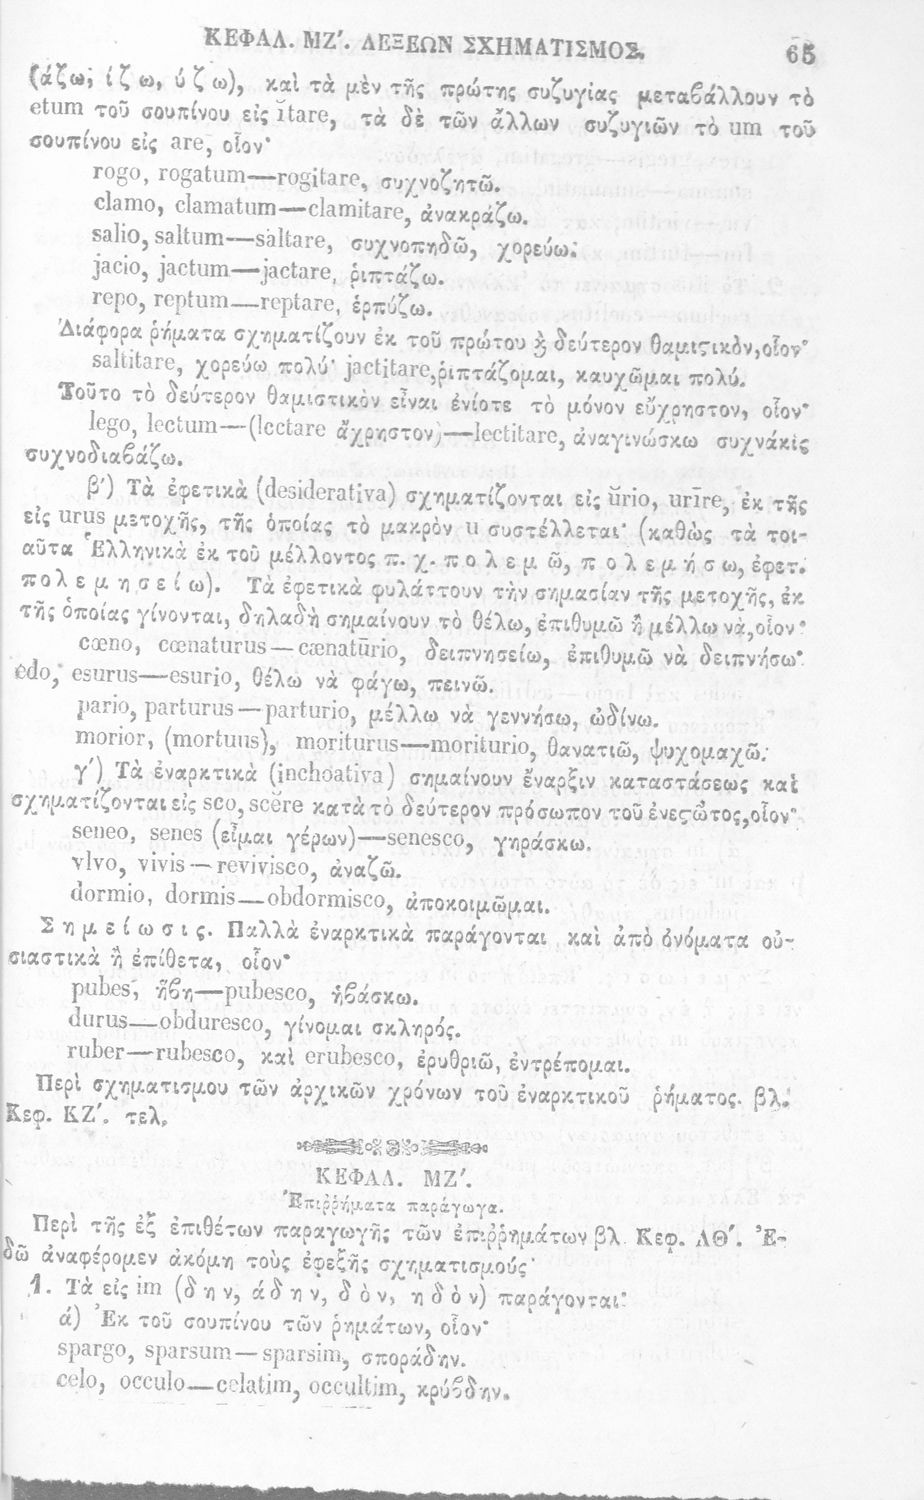 ΚΕΦΑΛ. ΜΖʹ. ΛΕΞΕΩΝ ΣΧΗΜΑΤΙΣΜΟΣ. 65
(άζω, ίζω, ύζω), καὶ τὰ μὲν τῆς πρώτης συζυγίας μεταβάλλουν τὸ
etum τοῦ σουπίνου εἰς ĭtare, τὰ δὲ τῶν ἄλλων συζυγιῶν τὸ um τοῦ
σουπίνου εἰς are, οἷον·
rogo, rogatum—rogitare, συχνοζητῶ.
clamo, clamatum—clamitare, ἀνακράζω.
salio, saltum—saltare, συχνοπηδῶ, χορεύω.
jacio, jactum—jactare, ῥιπτάζω.
repo, reptum—reptare, ἑρπύζω.
Διάφορα ῥήματα σχηματίζουν ἐκ τοῦ πρώτου ϗ δεύτερον θαμιςικὸν, οἷον·
saltitare, χορεύω πολύ· jactitare, ῥιπτάζομαι, καυχῶμαι πολύ.
Τοῦτο τὸ δεύτερον θαμιστικὸν εἶναι ἐνίοτε τὸ μόνον εὔχρηστον, οἷον·
lego, lectum—(lectare ἄχρηστον)—lectitare, ἀναγινώσκω συχνάκις
συχνοδιαβάζω.
βʹ) Τὰ ἐφετικὰ (desiderativa) σχηματίζονται εἰς ŭrio, urīre, ἐκ τῆς
εἰς urus μετοχῆς, τῆς ὁποίας τὸ μακρὸν u συστέλλεται· (καθὼς τὰ τοι-
αῦτα Ἑλληνικὰ ἐκ τοῦ μέλλοντος π. χ. πολεμῶ, πολεμήσω, ἐφετ.
πολεμησείω). Τὰ ἐφετικὰ φυλάττουν τὴν σημασίαν τῆς μετοχῆς, ἐκ
τῆς ὁποίας γίνονται, δηλαδὴ σημαίνουν τὸ θέλω, ἐπιθυμῶ ἢ μέλλω νὰ, οἷον·
cœno, cœnaturus—cœnatŭrio, δειπνησείω, ἐπιθυμῶ νὰ δειπνήσω·
edo, esurus—esurio, θέλω νὰ φάγω, πεινῶ.
pario, parturus—parturio, μέλλω νὰ γεννήσω, ὠδίνω.
morior, (mortuus), moriturus—moriturio, θανατιῶ, ψυχομαχῶ.
γʹ) Τὰ ἐναρκτικὰ (inchoativa) σημαίνουν ἔναρξιν καταστάσεως καὶ
σχηματίζονται εἰς sco, scĕre κατὰ τὸ δεύτερον πρόσωπον τοῦ ἐνεςῶτος, οἷον·
seneo, senes (εἶμαι γέρων)—senesco, γηράσκω.
vivo, vivis—revivisco, ἀναζῶ.
dormio, dormis—obdormisco, ἀποκοιμῶμαι.
Σημείωσις. Παλλὰ ἐναρκτικὰ παράγονται καὶ ἀπὸ ὀνόματα οὐ-
σιαστικὰ ἢ ἐπίθετα, οἷον·
pubes, ἥβη—pubesco, ἡβάσκω.
durus—obduresco, γίνομαι σκληρός.
ruber—rubesco, καὶ erubesco, ἐρυθριῶ, ἐντρέπομαι.
Περὶ σχηματισμου τῶν ἀρχικῶν χρόνων τοῦ ἐναρκτικοῦ ῥήματος. βλ.
Κεφ. ΚΖʹ. τελ.
ΚΕΦΑΛ. ΜΖʹ.
Ἐπιῤῥήματα παράγωγα.
Περὶ τῆς ἐξ ἐπιθέτων παραγωγῆς τῶν ἐπιῤῥημάτων βλ. Κεφ. ΛΘʹ. Ἐ-
δῶ ἀναφέρομεν ἀκόμη τοὺς ἐφεξῆς σχηματισμούς·
1. Τὰ εἰς im (δην, άδην, δὸν, ηδὸν) παράγονται·
ά) Ἐκ τοῦ σουπίνου τῶν ῥημάτων, οἷον·
spargo, sparsum—sparsim, σποράδην.
celo, occulo—celatim, occultim, κρύβδην.